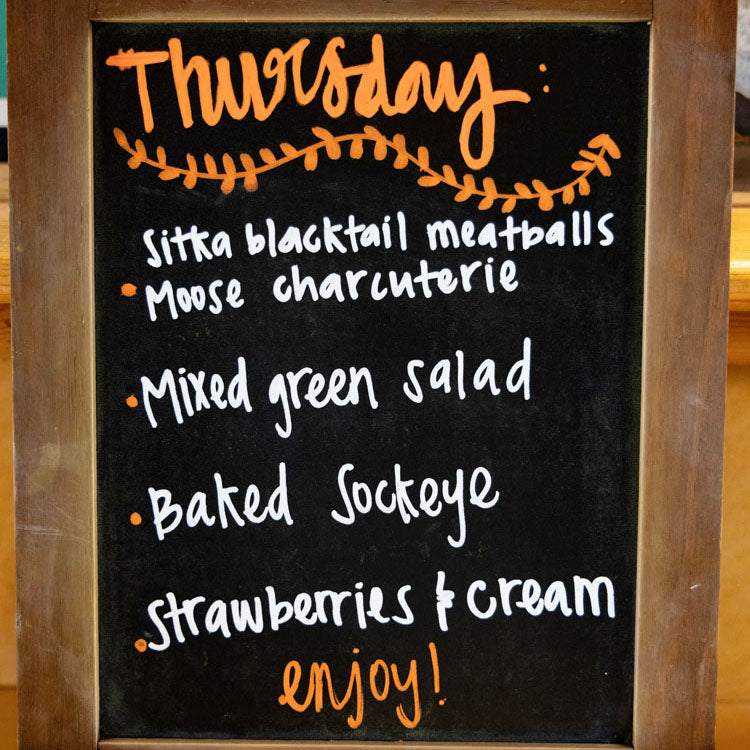 Thursday:
Sitka blacktail meatballs
• Moose charcuterie
• Mixed green salad
• Baked Sockeye
• Strawberries & cream
enjoy!